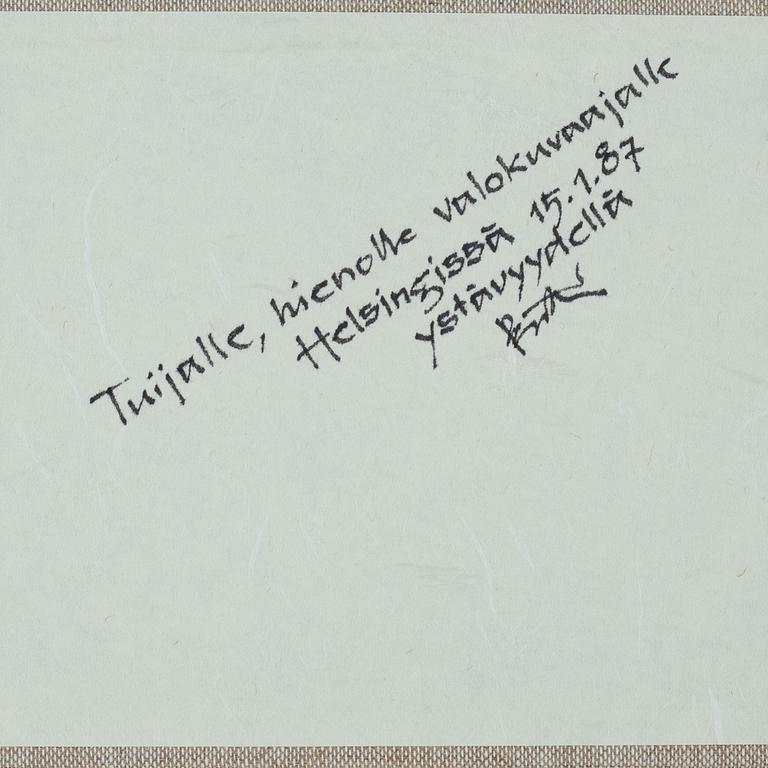 Tuijalle, hienolle valokuvaajalle
Helsingissä 15.1.87
ystävyydellä